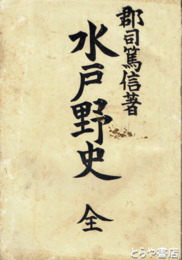 郡司篤信著
水戸野史
全
とらや書店